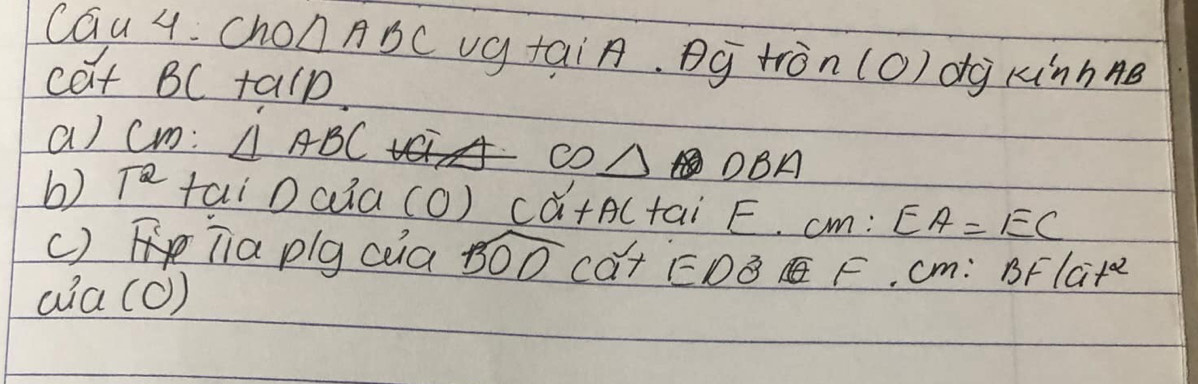 Câu 4. Cho Δ ABC vg tại A. Đg̀ tròn (O) đg̀ kính AB
cắt BC tại D.
a) Cm: Δ ABC ∽ Δ DBA
b) T² tại D của (O) cắt AC tại E. cm: EA = EC
c) Tia p/g của BOD cắt ED ở F. cm: BF là t²
của (O)